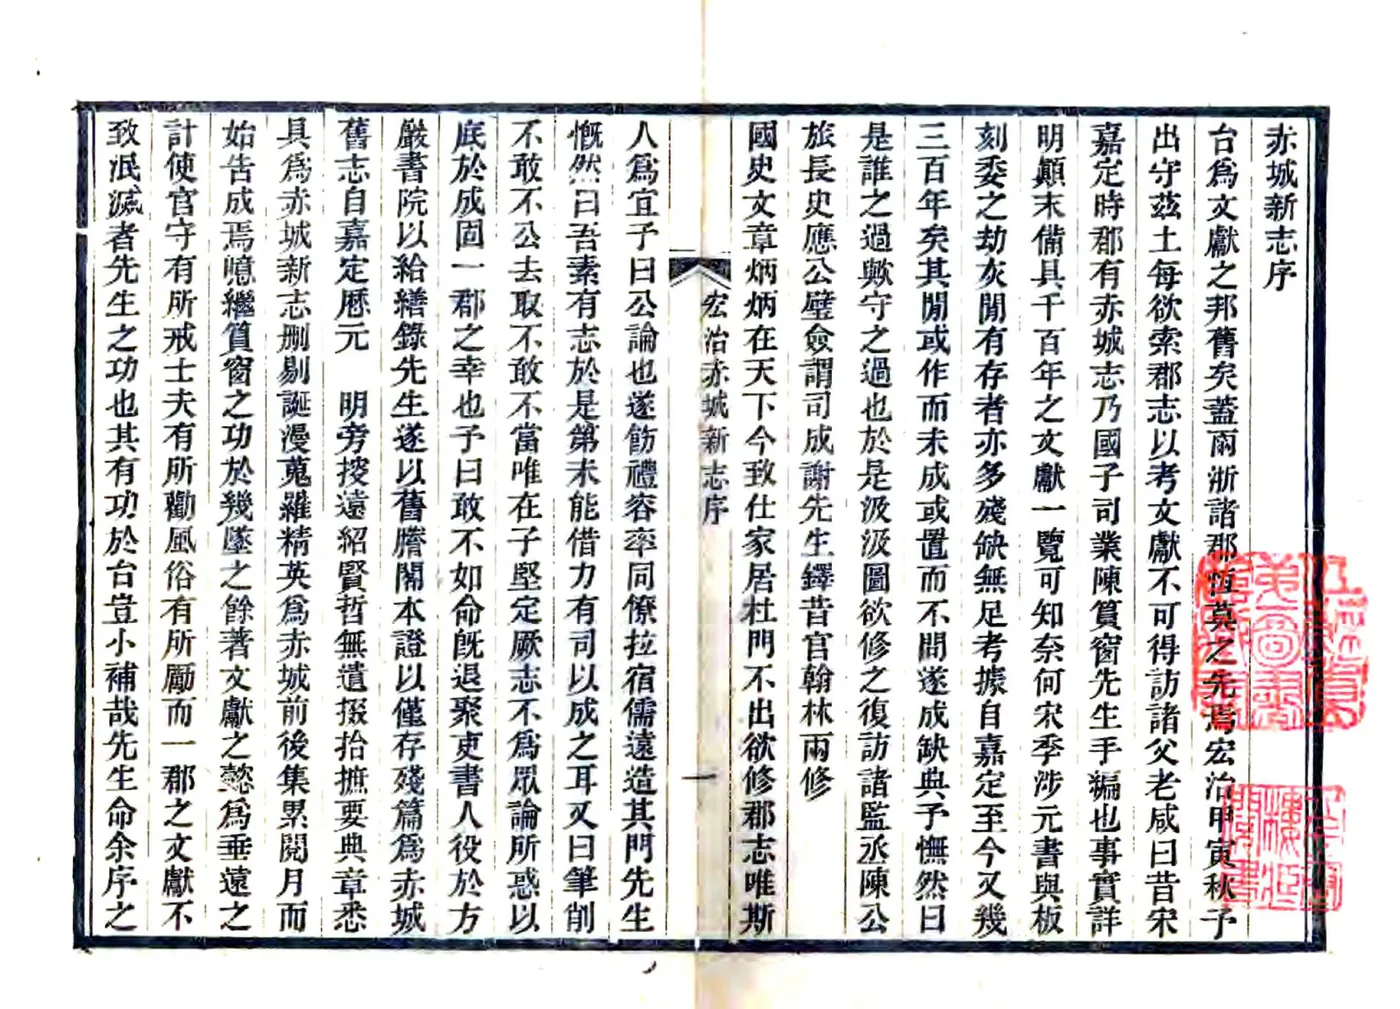 赤城新志序
台爲文獻之邦舊矣蓋兩浙諸郡恆莫之先焉宏治甲寅秋予
出守茲土每欲索郡志以考文獻不可得訪諸父老咸曰昔宋
嘉定時郡有赤城志乃國子司業陳篔窗先生手編也事實詳
明顚末備具千百年之文獻一覽可知奈何宋季涉元書與板
刻委之劫灰閒有存者亦多殘缺無足考據自嘉定至今又幾
三百年矣其閒或作而未成或置而不問遂成缺典予憮然曰
是誰之過歟守之過也於是汲汲圖欲修之復訪諸監丞陳公
旅長史應公璧僉謂司成謝先生鐸昔官翰林兩修
國史文章炳炳在天下今致仕家居杜門不出欲修郡志唯斯
宏治赤城新志序
一
人爲宜予曰公論也遂飭禮容率同僚拉宿儒遠造其門先生
慨然曰吾素有志於是第未能借力有司以成之耳又曰筆削
不敢不公去取不敢不當唯在子堅定厥志不爲眾論所惑以
底於成固一郡之幸也予曰敢不如命旣退聚吏書人役於方
嚴書院以給繕錄先生遂以舊謄閣本證以僅存殘篇爲赤城
舊志自嘉定歷元 明旁搜遠紹賢哲無遺掇拾摭要典章悉
具爲赤城新志刪剔誕漫蒐羅精英爲赤城前後集累閱月而
始告成焉噫繼篔窗之功於幾墜之餘著文獻之懿爲垂遠之
計使官守有所戒士夫有所勸風俗有所勵而一郡之文獻不
致泯滅者先生之功也其有功於台豈小補哉先生命余序之